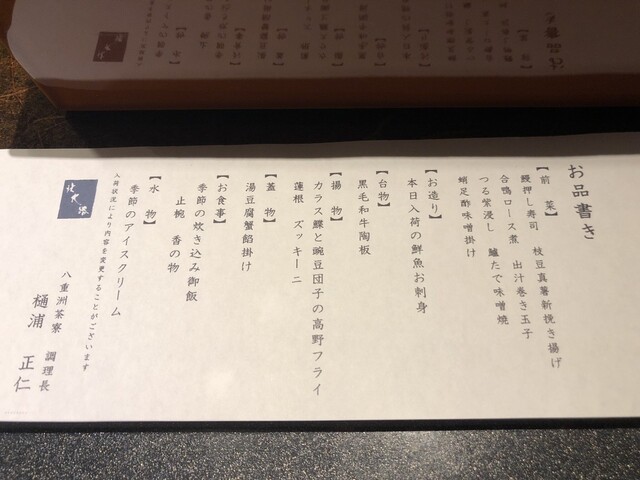 お品書き
【前 菜】
鰻押し寿司 枝豆真薯新挽き揚げ
合鴨ロース煮 出汁巻き玉子
つる紫浸し 鱸たで味噌焼
蛸足酢味噌掛け
【お造り】
本日入荷の鮮魚お刺身
【台物】
黒毛和牛陶板
【揚 物】
カラス鰈と豌豆団子の高野フライ
蓮根 ズッキーニ
【蓋 物】
湯豆腐蟹餡掛け
【お食事】
季節の炊き込み御飯
止椀 香の物
【水 物】
季節のアイスクリーム
入荷状況により内容を変更することがございます
八重洲茶寮 調理長
樋浦 正仁